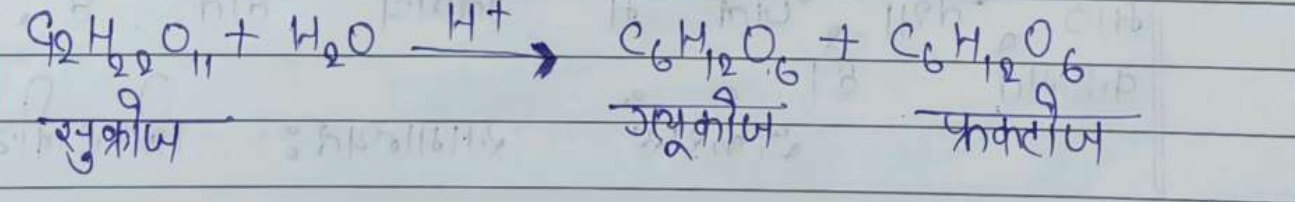 C₁₂H₂₂O₁₁ + H₂O —H⁺→ C₆H₁₂O₆ + C₆H₁₂O₆
सुक्रोज ग्लूकोज फ्रक्टोज